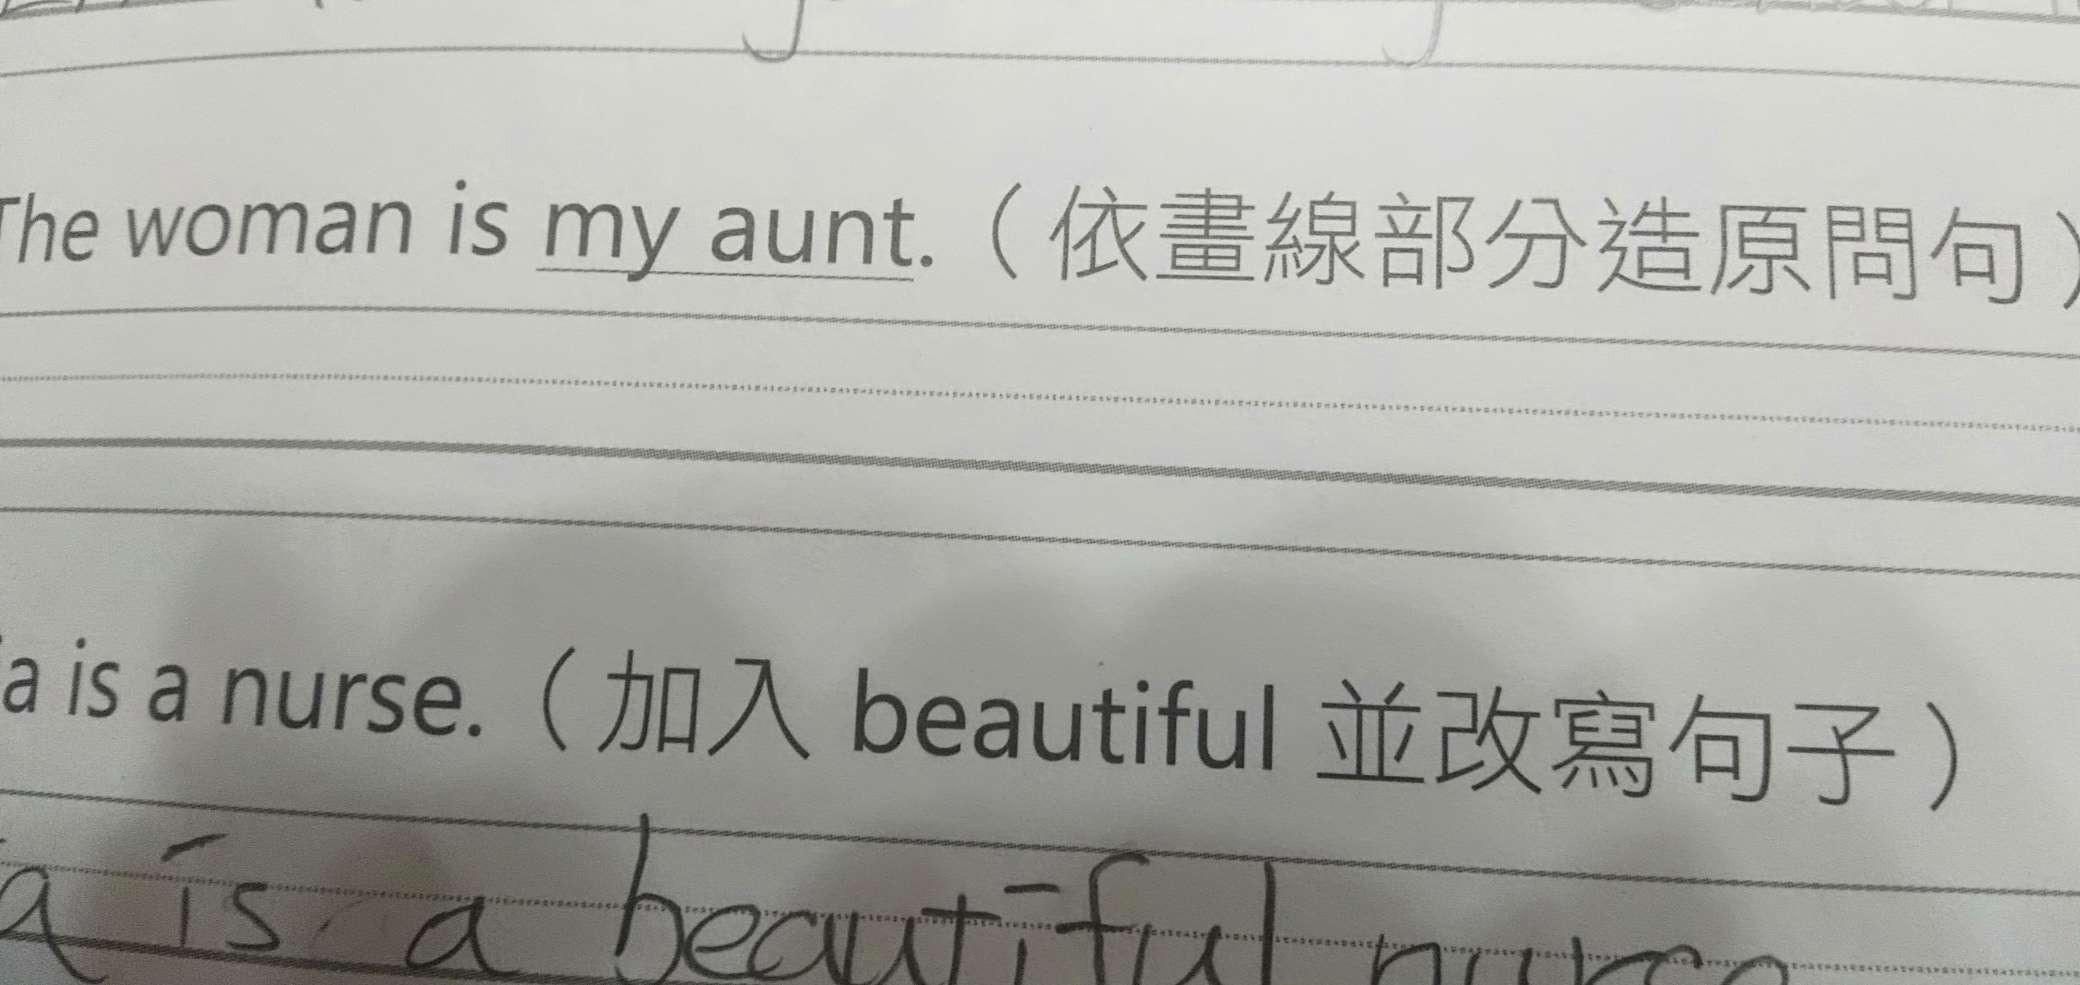 The woman is my aunt.（依畫線部分造原問句）
a is a nurse.（加入 beautiful 並改寫句子）
a is a beautiful nurse